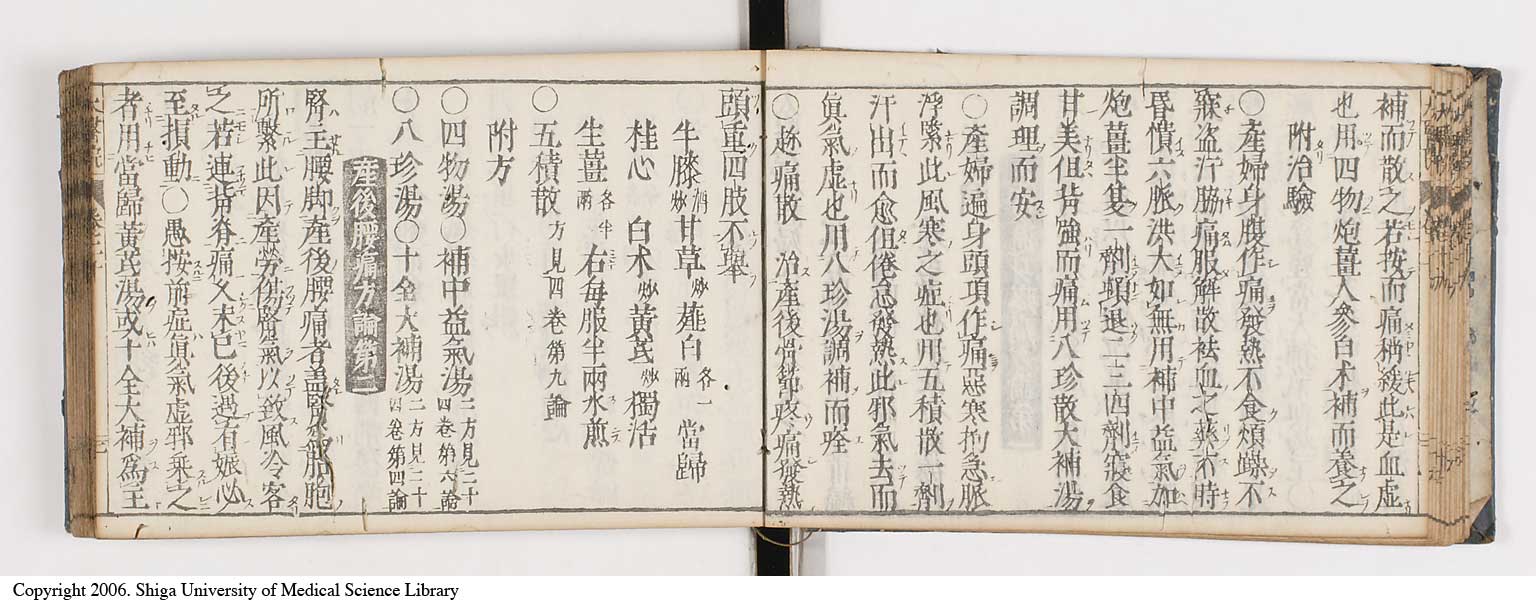 補而散之若按而痛稍緩此是血虚
也用四物炮薑人參白朮補而養之
附治驗
○產婦身腹作痛發熱不食煩躁不
寐盗汗脇痛服解散祛血之藥不時
昏憒六脈洪大如無用補中益氣加
炮薑半夏一劑頓退二三四劑寢食
甘美但背強而痛用八珍散大補湯
調理而安
○產婦遍身頭項作痛惡寒拘急脈
浮緊此風寒之症也用五積散一劑
汗出而愈但倦怠發熱此邪氣去而
眞氣虚也用八珍湯調補而痊
○趂痛散 治產後骨節疼痛發熱
頭重四肢不舉
牛膝 酒炒 甘草 炒 薤白 各一兩 當歸
桂心 白朮 炒 黃芪 炒 獨活
生薑 各半兩 右每服半兩水煎
○五積散 方見四卷第九論
附方
○四物湯○補中益氣湯 二方見二十四卷第六論
○八珍湯○十全大補湯 二方見二十四卷第四論
產後腰痛方論第二
腎主腰脚產後腰痛者盖腎爲胞胞
所繫此因產勞傷腎氣以致風冷客
之若連背脊痛久未已後遇有娠必
至損動○愚按前症眞氣虚邪乘之
者用當歸黃芪湯或十全大補爲主
Copyright 2006. Shiga University of Medical Science Library